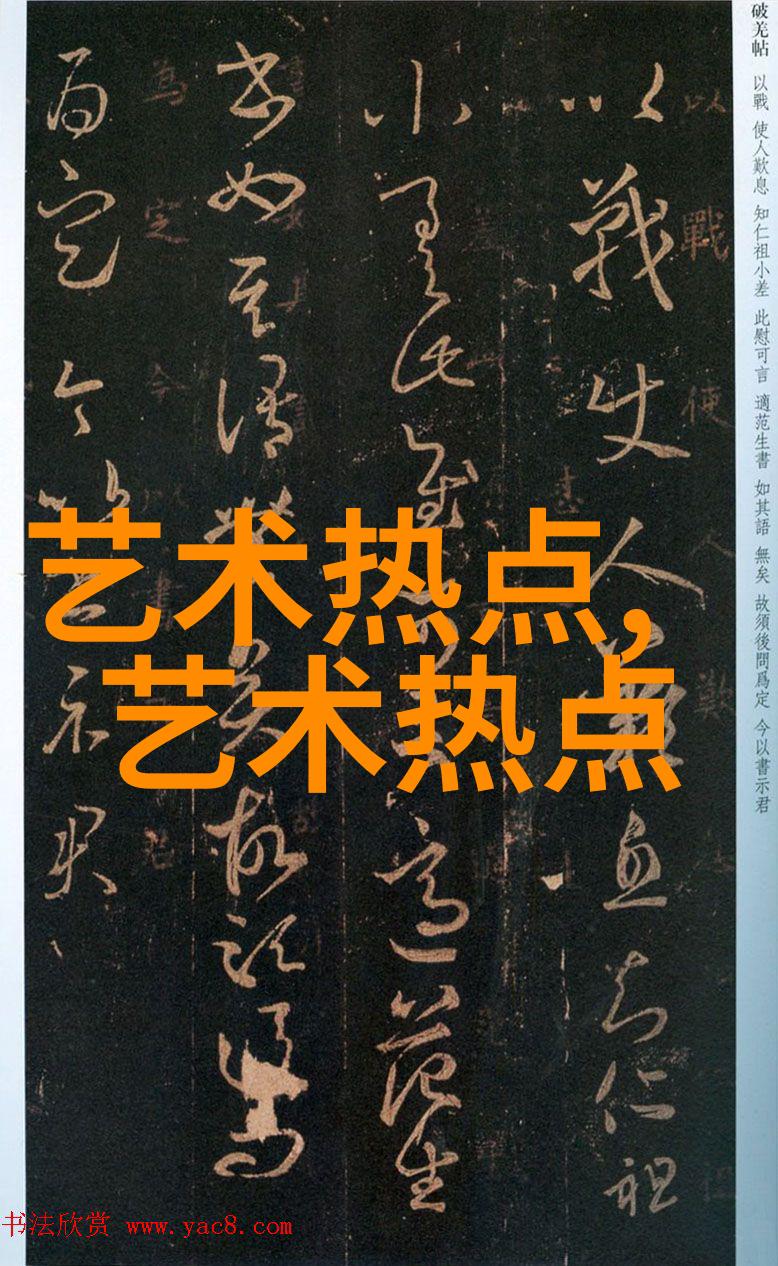 破羌帖 以戰 使人歎息 知仁祖小差 此慰可言 適范生書 如其語 無矣 故須後問爲定 今以書示君
以戰使人歎息知仁祖
小差此慰適范生
書如其語無矣故須後問
爲定今以書示君
艺术热点,
艺术热点
书法欣赏 www.yac8.com